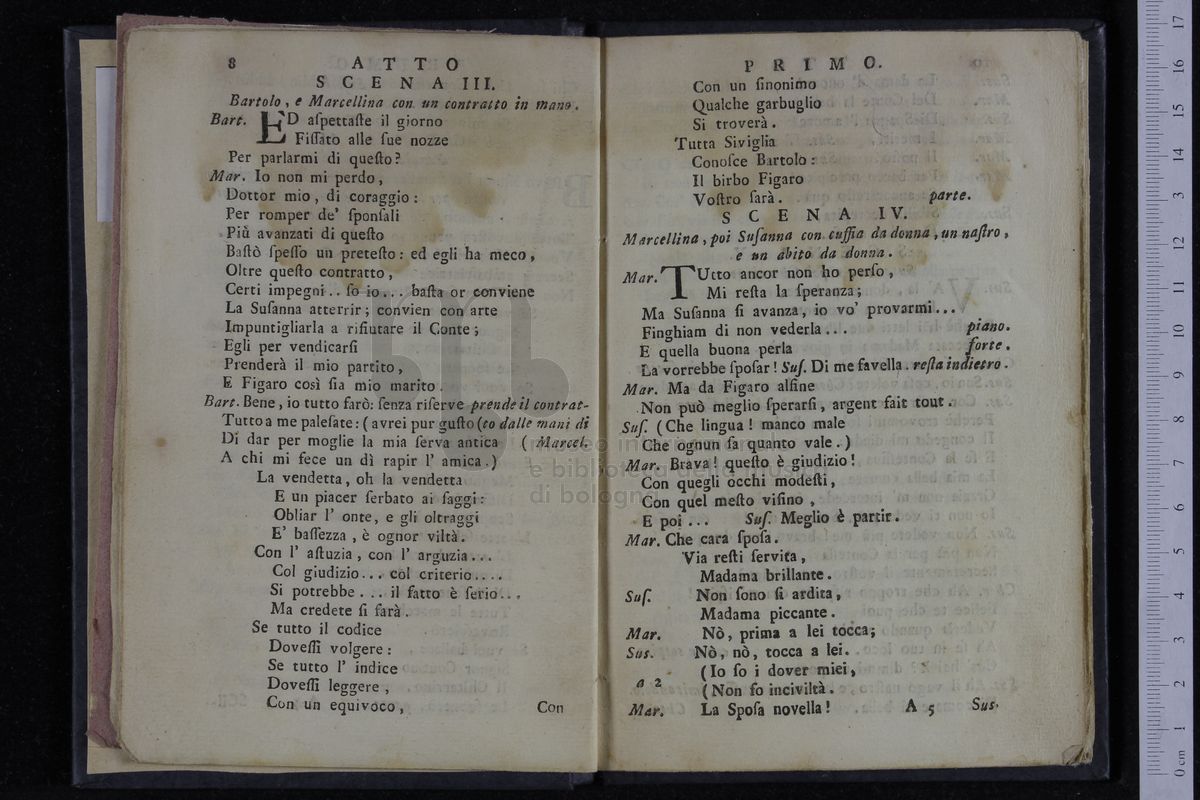 8 ATTO
SCENA III.
Bartolo, e Marcellina con un contratto in mano.
Bart. ED aſpettaſte il giorno
Fiſſato alle ſue nozze
Per parlarmi di queſto?
Mar. Io non mi perdo,
Dottor mio, di coraggio:
Per romper de' ſponſali
Più avanzati di queſto
Baſtò ſpeſſo un preteſto: ed egli ha meco,
Oltre queſto contratto,
Certi impegni.. ſo io... baſta or conviene
La Suſanna atterrir; convien con arte
Impuntigliarla a rifiutare il Conte;
Egli per vendicarſi
Prenderà il mio partito,
E Figaro così ſia mio marito.
Bart. Bene, io tutto farò: ſenza riſerve prende il contrat-
Tutto a me paleſate: (avrei pur guſto (to dalle mani di
Di dar per moglie la mia ſerva antica ( Marcel.
A chi mi fece un dì rapir l' amica.)
La vendetta, oh la vendetta
E un piacer ſerbato ai ſaggi:
Obliar l' onte, e gli oltraggi
E' baſſezza, è ognor viltà.
Con l' aſtuzia, con l' arguzia...
Col giudizio... col criterio....
Si potrebbe... il fatto è ſerio...
Ma credete ſi farà.
Se tutto il codice
Doveſſi volgere:
Se tutto l' indice
Doveſſi leggere,
Con un equivoco,
Con
PRIMO.
Con un ſinonimo
Qualche garbuglio
Si troverà.
Tutta Siviglia
Conoſce Bartolo:
Il birbo Figaro
Voſtro ſarà. parte.
SCENA IV.
Marcellina, poi Suſanna con cuffia da donna, un naſtro,
e un abito da donna.
Mar. TUtto ancor non ho perſo,
Mi reſta la ſperanza;
Ma Suſanna ſi avanza, io vo' provarmi...
Finghiam di non vederla... piano.
E quella buona perla forte.
La vorrebbe ſpoſar! Suſ. Di me favella. reſta indietro.
Mar. Ma da Figaro alfine
Non può meglio ſperarſi, argent fait tout.
Suſ. (Che lingua! manco male
Che ognun ſa quanto vale.)
Mar. Brava! queſto è giudizio!
Con quegli occhi modeſti,
Con quel meſto viſino,
E poi... Suſ. Meglio è partir.
Mar. Che cara ſpoſa.
Via reſti ſervita,
Madama brillante.
Suſ. Non ſono ſì ardita,
Madama piccante.
Mar. Nò, prima a lei tocca;
Sus. Nò, nò, tocca a lei.
a 2 (Io ſo i dover miei,
(Non fo inciviltà.
Mar. La Spoſa novella! A 5 Sus.
museo internazionale
e biblioteca della musica
di bologna